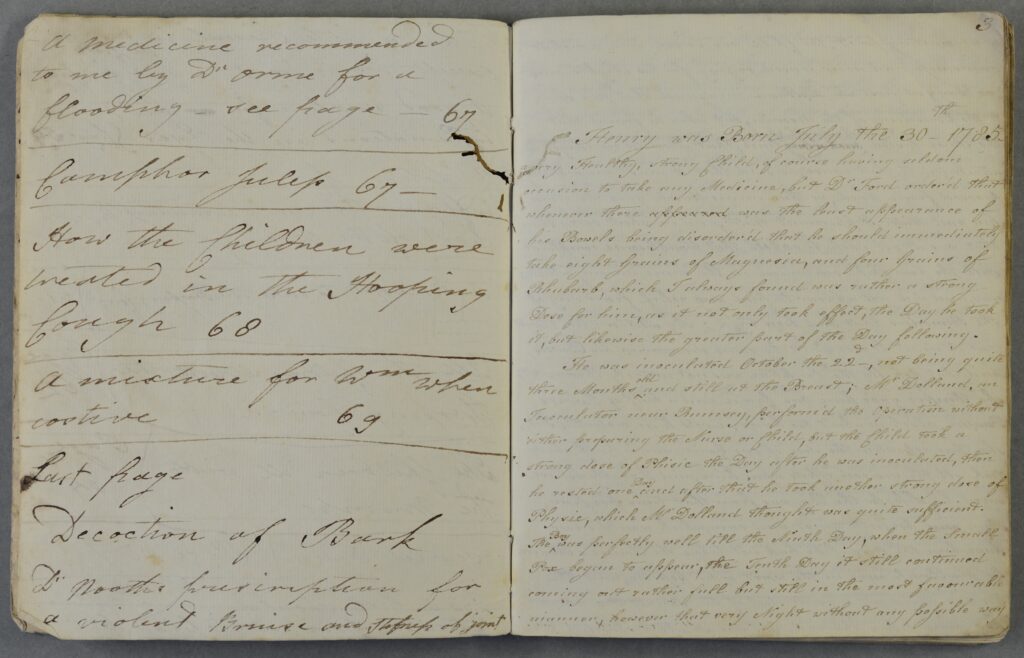 A medicine recommended
to me by Dr Orme for a
flooding - see page - 67
Camphor Julep 67 -
How the Children were
treated in the Hooping
Cough 68
A mixture for Wm when
costive 69
Last page
Decoction of Bark
Dr Nooths prescription for
a violent Bruise and stifness of joint
3
Henry was Born July the 30th 1785.
very Healthy, strong Child, of course having seldom
occasion to take any Medicine, but Dr Ford orderd that
whenever there appeared was the least appearance of
his Bowels being disorder'd that he should immediately
take eight Grains of Magnesia, and four Grains of
Rhubarb, which I always found was rather a strong
Dose for him, as it not only took effect, the Day he took
it, but likewise the greater part of the Day following.
He was inoculated October the 22d, not being quite
three Months old and still at the Breast; Mr Dolland, an
Inoculator near Rumsey, perform'd the Operation without
either preparing the Nurse or Child, but the Child took a
strong dose of Phisic the Day after he was inoculated, then
he rested one Day and after that he took another strong dose of
Physic, which Mr Dolland thought was quite sufficient.
The Boy was perfectly well till the Ninth Day, when the Small
Pox began to appear, the Tenth Day it still continued
coming out rather full but still in the most favourable
manner, however that very Night without any Possible way